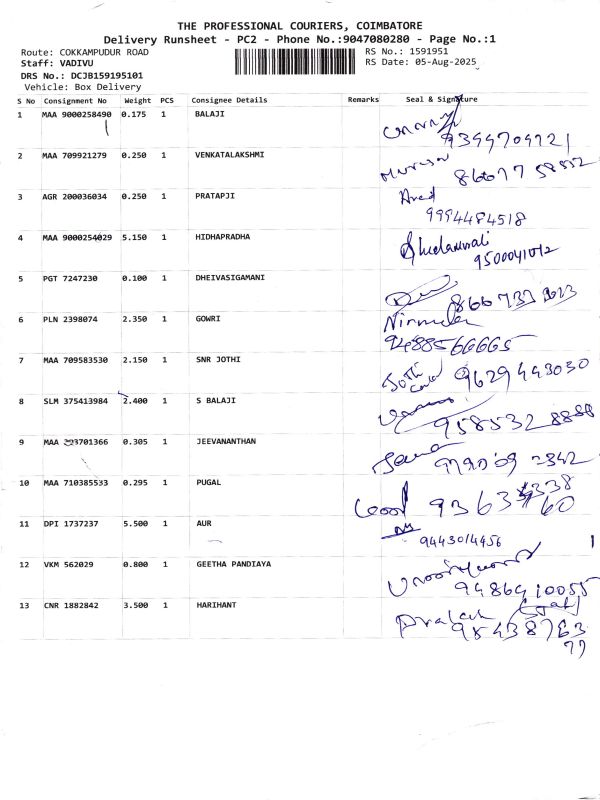 THE PROFESSIONAL COURIERS, COIMBATORE
Delivery Runsheet - PC2 - Phone No.:9047080280 - Page No.:1
Route: COKKAMPUDUR ROAD
RS No.: 1591951
Staff: VADIVU
RS Date: 05-Aug-2025
DRS No.: DCJB159195101
Vehicle: Box Delivery
S No Consignment No Weight PCS Consignee Details Remarks Seal & Signature
1 MAA 9000258490 0.175 1 BALAJI
2 MAA 709921279 0.250 1 VENKATALAKSHMI
3 AGR 200036034 0.250 1 PRATAPJI
9994484518
4 MAA 9000254029 5.150 1 HIDHAPRADHA
9500041012
5 PGT 7247230 0.100 1 DHEIVASIGAMANI
6 PLN 2398074 2.350 1 GOWRI
9488566665
7 MAA 709583530 2.150 1 SNR JOTHI
9629443030
8 SLM 375413984 2.400 1 S BALAJI
958532 8888
9 MAA 701366 0.305 1 JEEVANANTHAN
10 MAA 710385533 0.295 1 PUGAL
11 DPI 1737237 5.500 1 AUR
9443014456
12 VKM 562029 0.800 1 GEETHA PANDIAYA
9486910055
13 CNR 1882842 3.500 1 HARIHANT
95438763
77